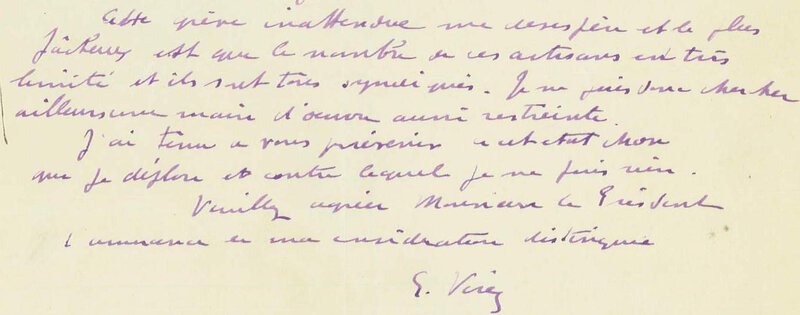 Cette grève inattendue me desespère et le plus
fâcheux est que le nombre de ces artisans est très
limité et ils sont tous syndiqués. Je ne puis donc chercher
ailleurs une main d'oeuvre aussi restreinte.
J'ai tenu a vous prévenir a cet etat
que je déplore et contre lequel je ne puis rien.
Veuillez agréer Monsieur le Président
l'assurance de ma considération distinguée